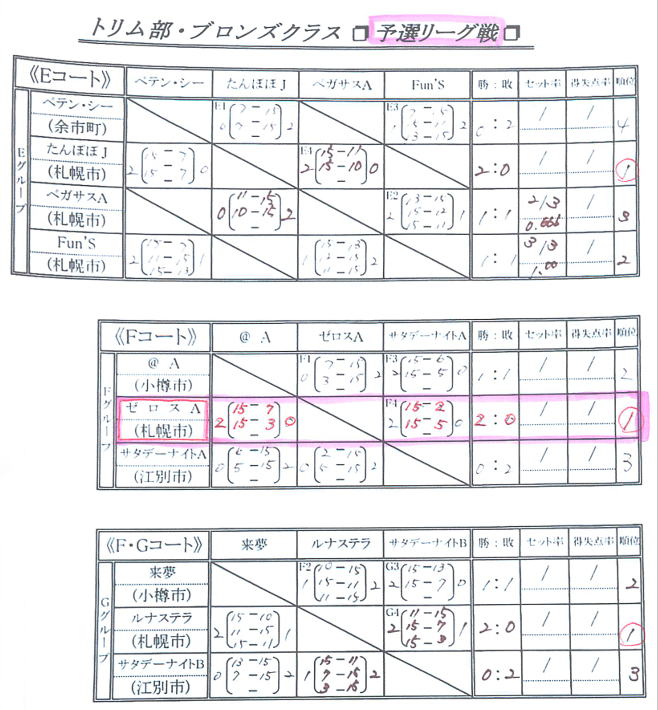 トリム部・ブロンズクラス ❐ 予選リーグ戦 ❐
《Eコート》 ベテン・シー たんぽぽJ ペガサスA Fun'S 勝：敗 セット率 得失点率 順位
Eグループ
ベテン・シー (余市町) E1 0 7-15 7-15 2 E3 1 2 0:2 / / 4
たんぽぽJ (札幌市) 2 15-7 15-7 0 E4 2 15-11 15-10 0 2:0 / / 1
ペガサスA (札幌市) 0 11-15 10-15 2 E2 2 13-15 15-12 15-11 1 1:1 2/3 0.666 / 3
Fun'S (札幌市) 2 15-7 11-15 15-13 1 1 15-13 12-15 11-15 2 1:1 3/3 1.00 / 2
《Fコート》 @ A ゼロスA サタデーナイトA 勝：敗 セット率 得失点率 順位
Fグループ
@ A (小樽市) F1 0 7-15 3-15 2 F3 2 15-6 15-5 0 1:1 / / 2
ゼロスA (札幌市) 2 15-7 15-3 0 F4 2 15-2 15-5 0 2:0 / / 1
サタデーナイトA (江別市) 0 6-15 5-15 2 0 2-15 5-15 2 0:2 / / 3
《F・Gコート》 来夢 ルナステラ サタデーナイトB 勝：敗 セット率 得失点率 順位
Gグループ
来夢 (小樽市) F2 1 10-15 15-11 11-15 2 G3 2 15-13 15-7 0 1:1 / / 2
ルナステラ (札幌市) 2 15-10 11-15 15-11 1 G4 2 11-15 15-7 15-3 1 2:0 / / 1
サタデーナイトB (江別市) 0 13-15 7-15 2 1 15-11 7-15 3-15 2 0:2 / / 3